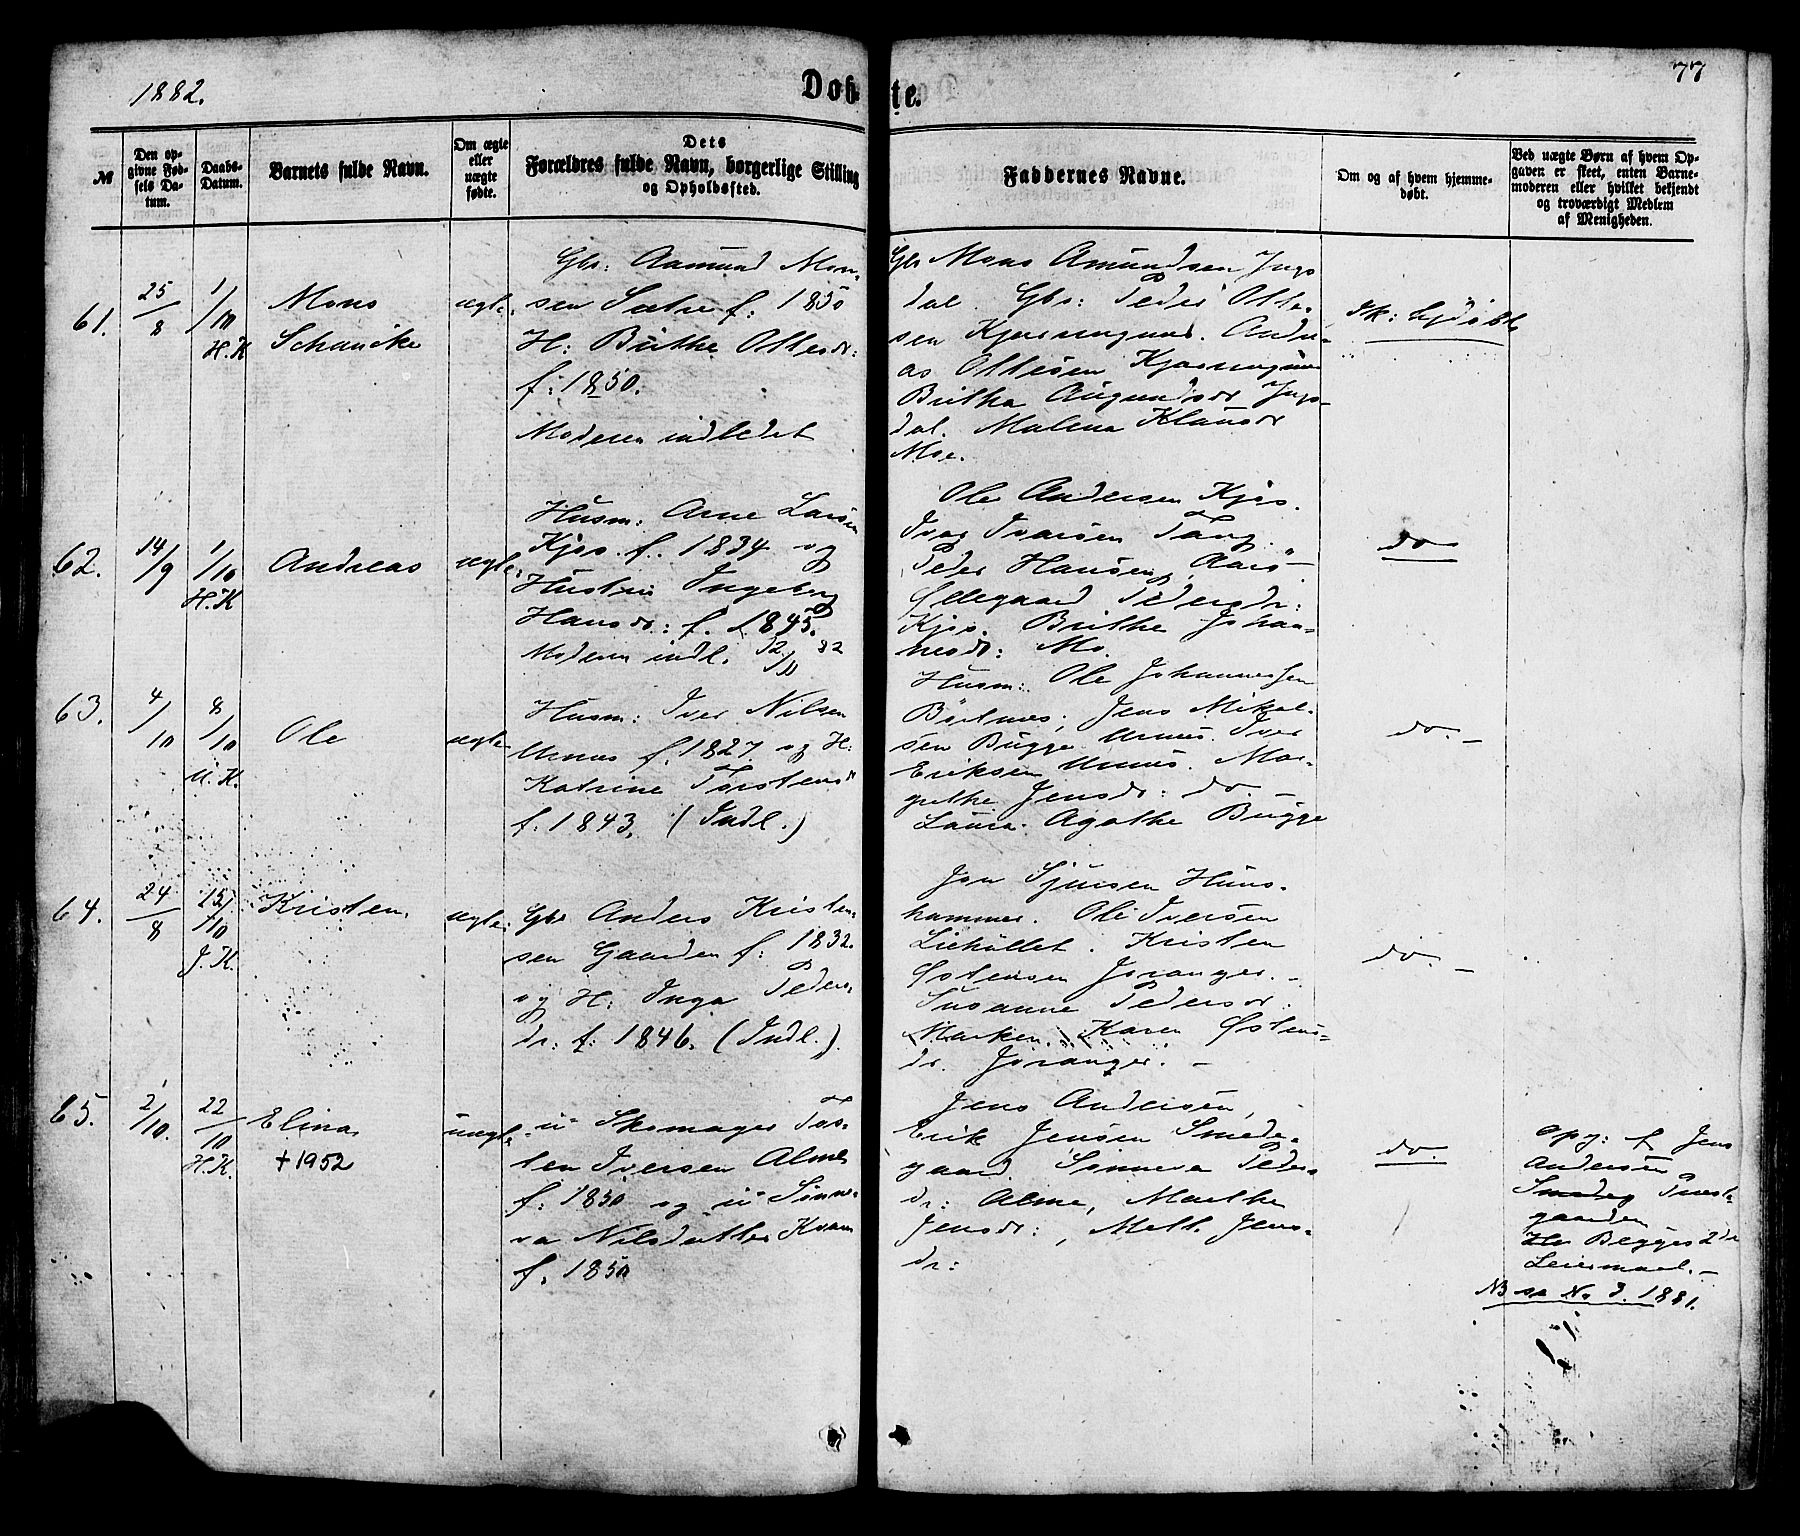 1882.
Døbte.
77
№
Den opgivne Fødsels Datum.
Daabs-Datum.
Barnets fulde Navn.
Om ægte eller uægte fødte.
Dets Forældres fulde Navn, borgerlige Stilling og Opholdssted.
Faddernes Navne.
Om og af hvem hjemmedøbt.
Ved uægte Børn af hvem Opgaven er skeet, enten Barnemoderen eller hvilket bekjendt og troværdigt Medlem af Menigheden.
61.
25/8
1/10
H.K
Mons
Schancke
ægte.
Gbr: Aamund Mon-
sen Sætre f: 1850
H: Brithe Ottesdr:
f: 1850.
Moderen indledet
Gbr Mons Amundsen Jugs
dal. Gbr: Peder Otte-
sen Kjærringnes. Andre-
as Ottesen Kjærringnes
Britha Augundsdr Jugs-
dal. Malena Klausdr
Moe.
Sk: hjdøbt
62.
14/9
1/10
H.K
Andreas
ægte.
Husm: Arne Larsen
Kjos. f. 1834 og
Hustru Ingeborg
Hansdr: f. 1845.
Moderen indl. 12/11 82
Ole Andersen Kjos.
Ivar Ivarsen Tang.
Peder Hansen, Aarø-
Øllegaard Pedersdr:
Kjos. Brithe Johan-
nesdr: Mo.
do
63.
4/10
8/10
U.K.
Ole
ægte
Husm: Iver Nilsen
Urnes f. 1827 og H:
Katrine Torstensdr
f. 1843. (Indl.)
Husm: Ole Johannesen
Bølnes; Jens Mikal-
sen Bugge Urnes. Iver
Eriksen Urnes. Mar-
grethe Jensdr: do.-
Laura Agathe Bugge
do.-
64.
24/8
15/10
J.K.
Kristen
ægte
Gbr Anders Kristen-
sen Gaarden f: 1832.
og H: Inga Peders-
dr. f: 1846. (Indl.)
Jon Sjursen Huns-
hammer. Ole Iversen
Liehullet. Kristen
Østensen Joranger.-
Susanne Pedersdr.
Marken. Karen Østens-
dr. Joranger.-
do.-
65.
2/10.
22/10
H.K.
Elina
+1952
uægte
u Skomager Tos-
ten Iversen Alme
f: 1850 og u Sønne-
va Nilsdatter Kvam
f. 1850
Jens Andersen,
Erik Jensen Smede-
gaard. Sønneva Peders-
dr: Alme, Marthe
Jensdr:, Mett. Jens-
dr:
do.
opg: f Jens
Andersen
Smedeg Prest-
gaarden
Begges 2de
Leiermaal.-
NB se No 3. 1881.